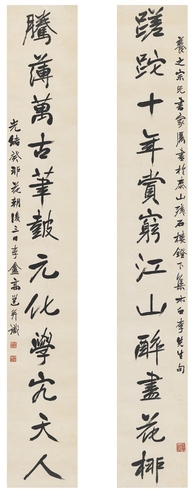 蹉跎十年賞窮江山醉盡花柳
養之宗兄書家屬書於泰山殘石樓鐙下集太白李先生句
騰薄萬古筆鼓元化學究天人
光緒癸卯花朝後三日